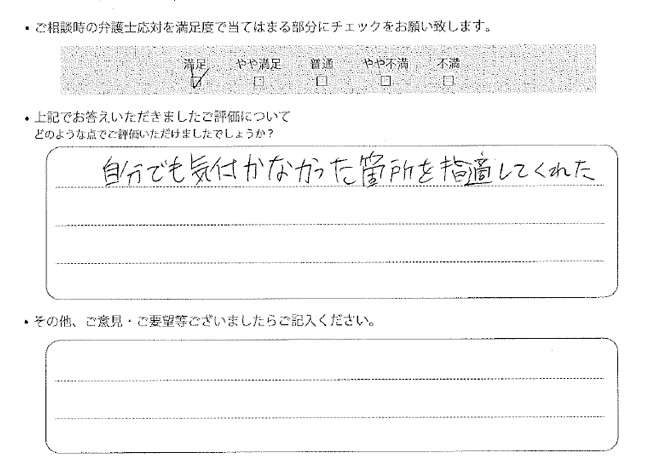 ・ご相談時の弁護士応対を満足度で当てはまる部分にチェックをお願い致します。
満足 やや満足 普通 やや不満 不満
・上記でお答えいただきましたご評価について
どのような点でご評価いただけましたでしょうか？
自分でも気付かなかった箇所を指適してくれた
・その他、ご意見・ご要望等ございましたらご記入ください。